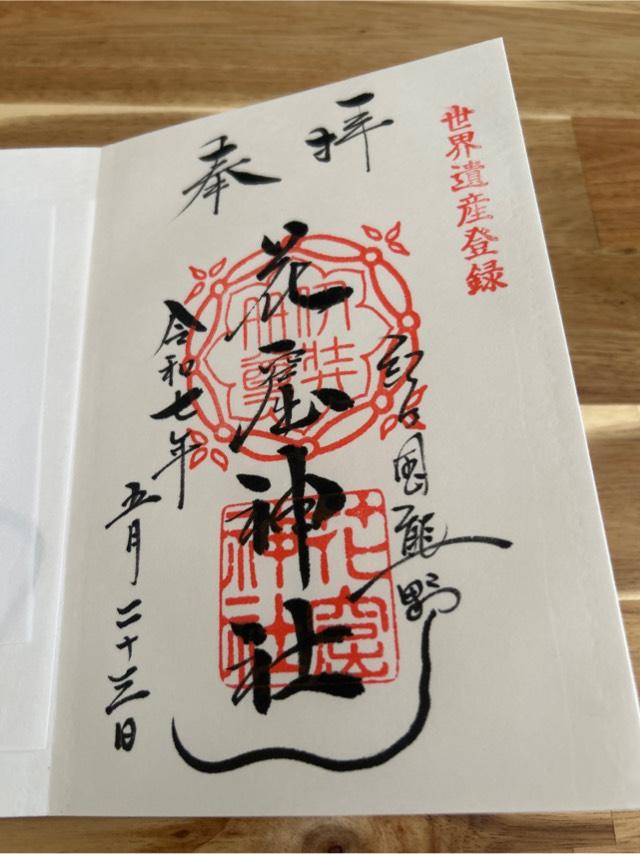 世界遺産登録
奉拝
国熊野
花窟神社
令和七年
五月二十三日
伊弉
冊尊
花窟
神社